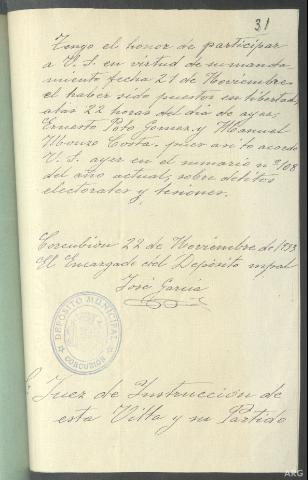 31
Tengo el honor de participar
a V. S. en virtud de manda
miento fecha 21 de Noviembre
el haber sido puestos en libertad
a las 22 horas del dia de ayer,
Ernesto Poto Gomez y Manuel
Mouzo Costa. pues asi lo acordo
V. S. ayer en el sumario nº 108
del año actual, sobre delitos
electorales y lesiones.
Corcubión 22 de Noviembre de 1933
El Encargado del Depósito mpal
José Garcia
DEPÓSITO MUNICIPAL
CORCUBIÓN
Juez de Instrucción de
esta Villa y su Partido
ARG